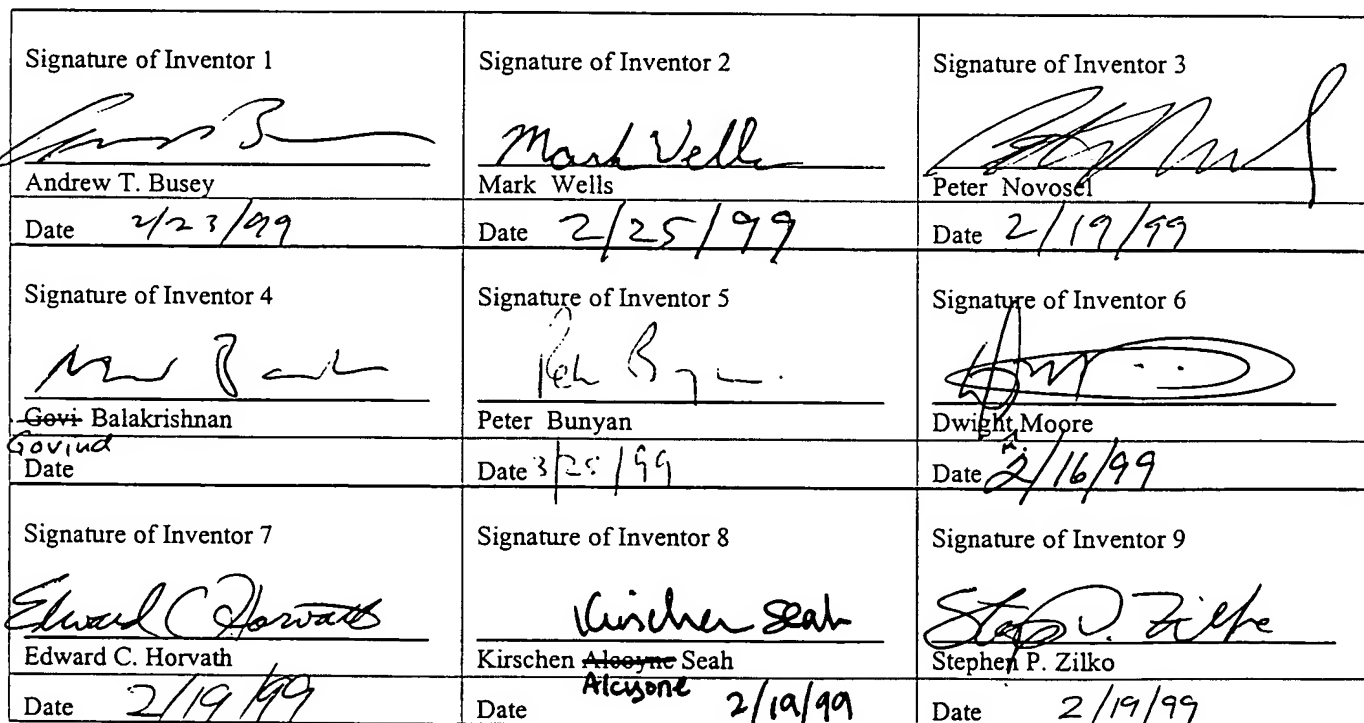 Signature of Inventor 1
Signature of Inventor 2
Signature of Inventor 3
Mark Wells
Andrew T. Busey
Mark Wells
Peter Novosel
Date 2/23/99
Date 2/25/99
Date 2/19/99
Signature of Inventor 4
Signature of Inventor 5
Signature of Inventor 6
Govi Balakrishnan
Peter Bunyan
Dwight Moore
Govind
Date
Date 3/25/99
Date 2/16/99
Signature of Inventor 7
Signature of Inventor 8
Signature of Inventor 9
Edward C Horvath
Kirschen Seah
Edward C. Horvath
Kirschen Alcoyne Seah
Stephen P. Zilko
Alcyone
Date 2/19/99
Date 2/19/99
Date 2/19/99